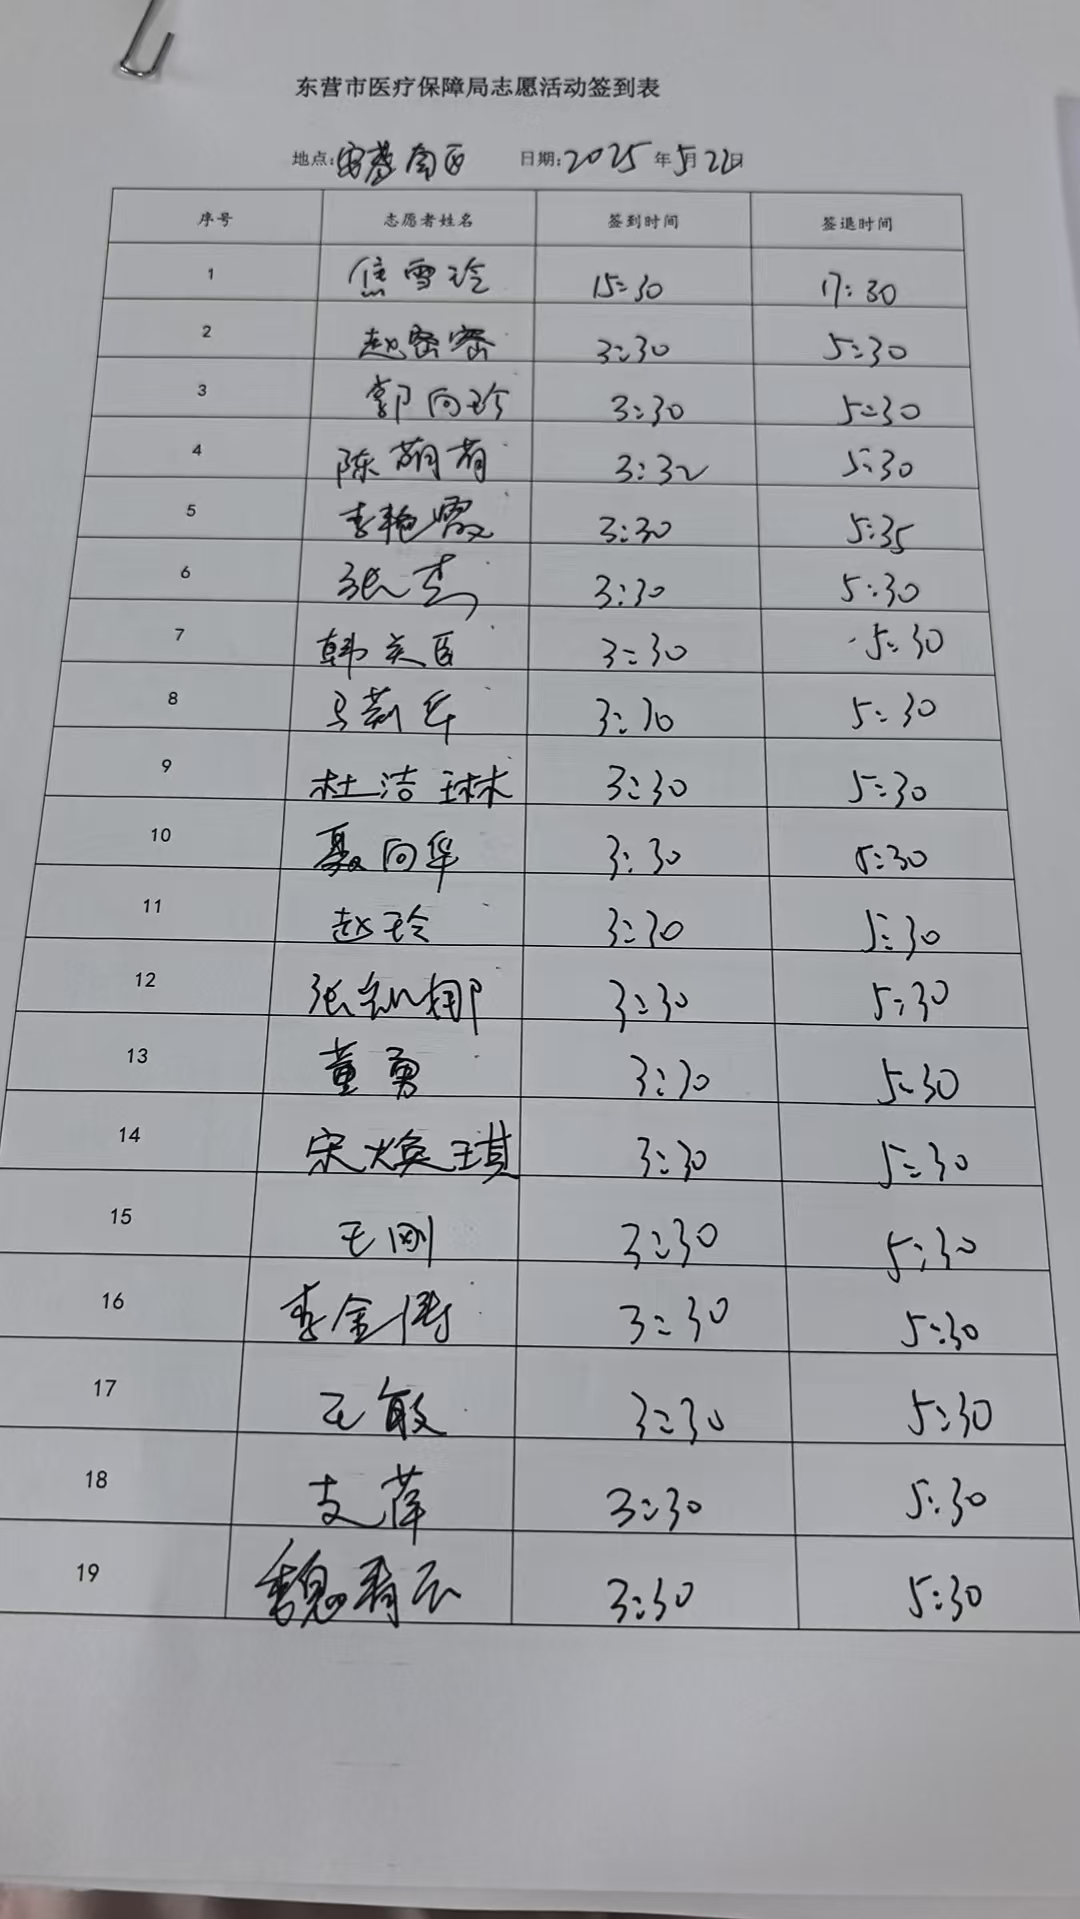 东营市医疗保障局志愿活动签到表
地点: 南区 日期:2025年5月22日
序号 志愿者姓名 签到时间 签退时间
1 焦雪玲 15:30 17:30
2 赵密密 3:30 5:30
3 郭向珍 3:30 5:30
4 陈萌萌 3:32 5:30
5 李艳霞 3:30 5:35
6 张杰 3:30 5:30
7 韩关臣 3:30 5:30
8 马莉华 3:30 5:30
9 杜洁琳 3:30 5:30
10 聂向华 3:30 5:30
11 赵玲 3:30 5:30
12 张娜 3:30 5:30
13 董勇 3:30 5:30
14 宋焕琪 3:30 5:30
15 王刚 3:30 5:30
16 李金涛 3:30 5:30
17 王敏 3:30 5:30
18 支萍 3:30 5:30
19 魏 3:30 5:30